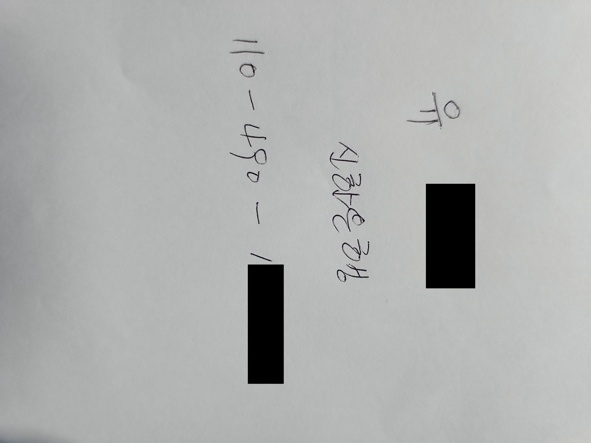 유
신한은행
110-480-1